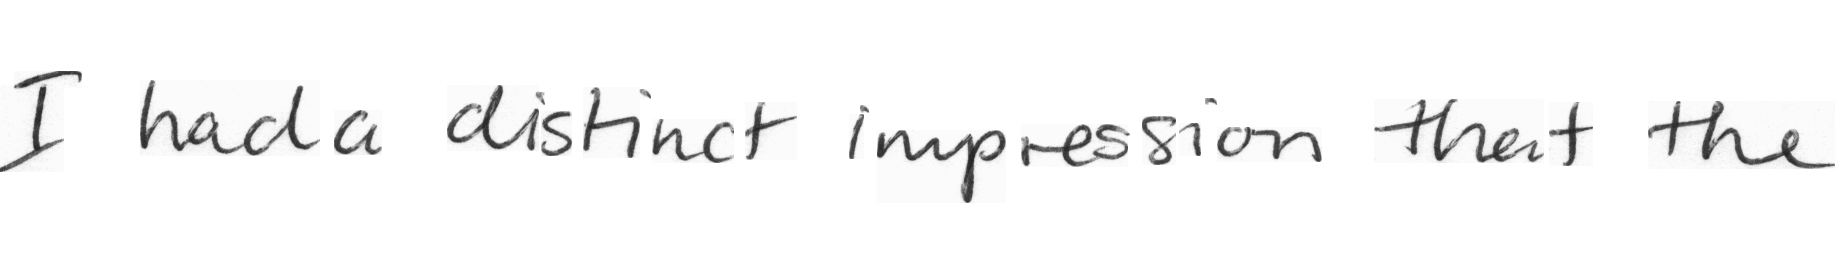 I had a distinct impression that the